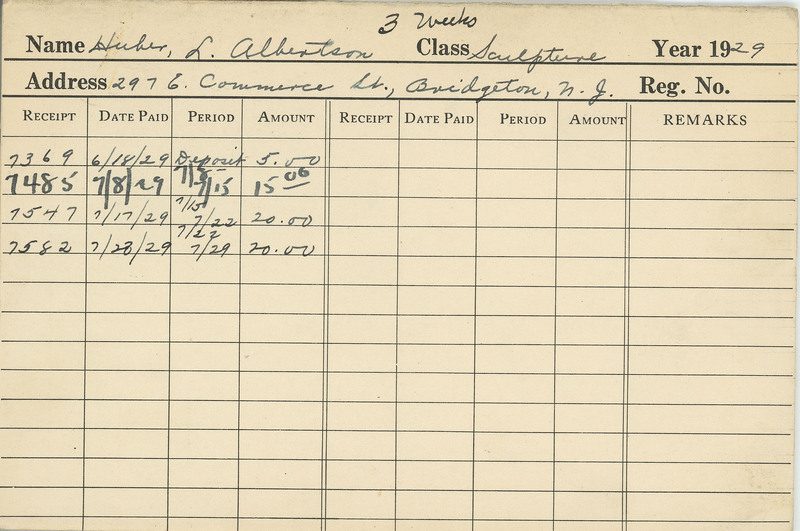 3 Weeks
Name Huber, L. Albertson Class Sculpture Year 1929
Address 297 E. Commerce St., Bridgeton, N. J. Reg. No.
RECEIPT DATE PAID PERIOD AMOUNT RECEIPT DATE PAID PERIOD AMOUNT REMARKS
7369 6/18/29 Deposit 5.00
7485 7/8/29 7/8- 7/15 15 00
7547 7/17/29 7/15 7/22 20.00
7582 7/23/29 7/22 7/29 20.00